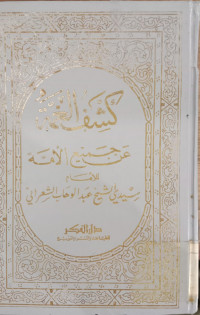 كشف الغمة
عن جميع الأمة
للإمام
سيدي الشيخ عبد الوهاب الشعراني
دار الفكر